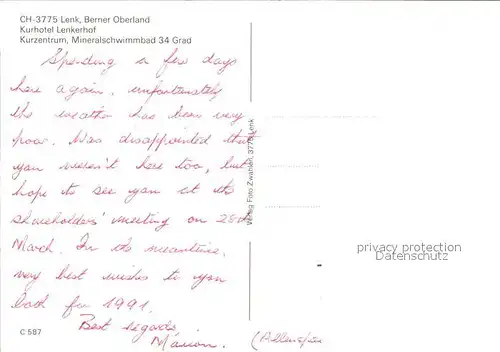 CH-3775 Lenk, Berner Oberland
Kurhotel Lenkerhof
Kurzentrum, Mineralschwimmbad 34 Grad
Spending a few days
here again, unfortunately
the weather has been very
poor. Was disappointed that
you weren't here too, but
hope to see you at the
shareholders' meeting on 28th
March. In the meantime,
very best wishes to you
both for 1991.
Best regards,
Marion.
C 587
Verlag Foto Zwahlen, 3775 Lenk
privacy protection
Datenschutz